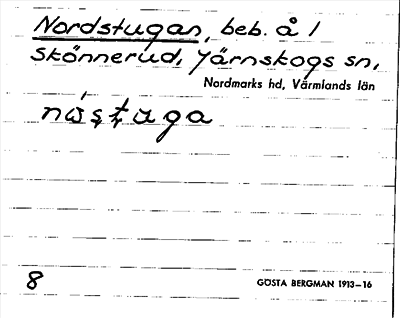 Nordstugan, beb. å 1
Skönnerud, Järnskogs sn,
Nordmarks hd, Värmlands län
8
GÖSTA BERGMAN 1913–16